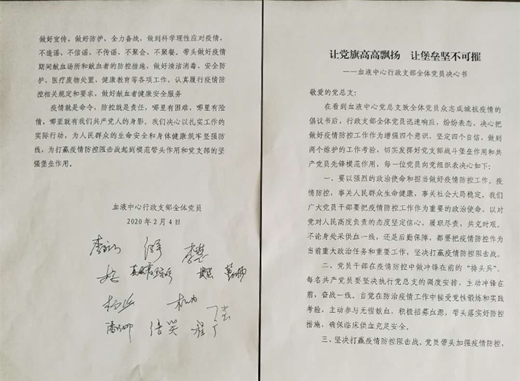 让党旗高高飘扬 让堡垒坚不可摧
——血液中心行政支部全体党员决心书
敬爱的党总支：
在看到血液中心党总支致全体党员众志成城抗疫情的
倡议书后，行政支部全体党员迅速响应，纷纷表态，决心把
做好疫情防控工作作为增强四个意识，坚定四个自信，做到
两个维护的工作考验，切实发挥好党支部战斗堡垒作用和
共产党员先锋模范作用，每一位党员向党组织表决心如下：
一、要以强烈的政治使命和担当做好疫情防控工作，疫
情防控，事关人民群众生命健康，事关社会大局稳定，我们
广大党员干部要把疫情防控工作作为重要的政治使命，以对
党对人民高度负责的态度坚定信心，履职尽责，共克时艰，
不论身处采供血一线，还是后勤保障，都要把疫情防控作为
当前重大政治任务和重要工作，坚决打赢疫情防控阻击战。
二、党员干部在疫情防控中做冲锋在前的“排头兵”，
每名共产党员要坚决执行党总支的调度安排，主动冲锋在
前，奋战一线，自觉在防治疫情工作中接受党性锻炼和实践
考验，主动参与无偿献血，积极招募血源，带头落实好防控
措施，确保临床供血充足安全。
三、坚决打赢疫情防控阻击战，党员带头加强疫情防控，
做好宣传，做好防护，全力备战，做到科学理性应对疫情，
不造谣、不信谣、不传谣、不聚会、不聚餐，带头做好疫情
期间献血场所和献血者的防控措施，做好清洁消毒、安全防
护，医疗废物处置、健康教育等各项工作，认真履行疫情防
控相关规定和要求，做好献血者健康安全服务
疫情就是命令，防控就是责任，哪里有困难，哪里有险
情，哪里就有我们共产党人的身影，我们决心以扎实工作的
实际行动，为人民群众的生命安全和身体健康筑牢坚强防
线，为打赢疫情防控阻击战起到模范带头作用和党支部的坚
强堡垒作用。
血液中心行政支部全体党员
2020 年 2 月 4 日